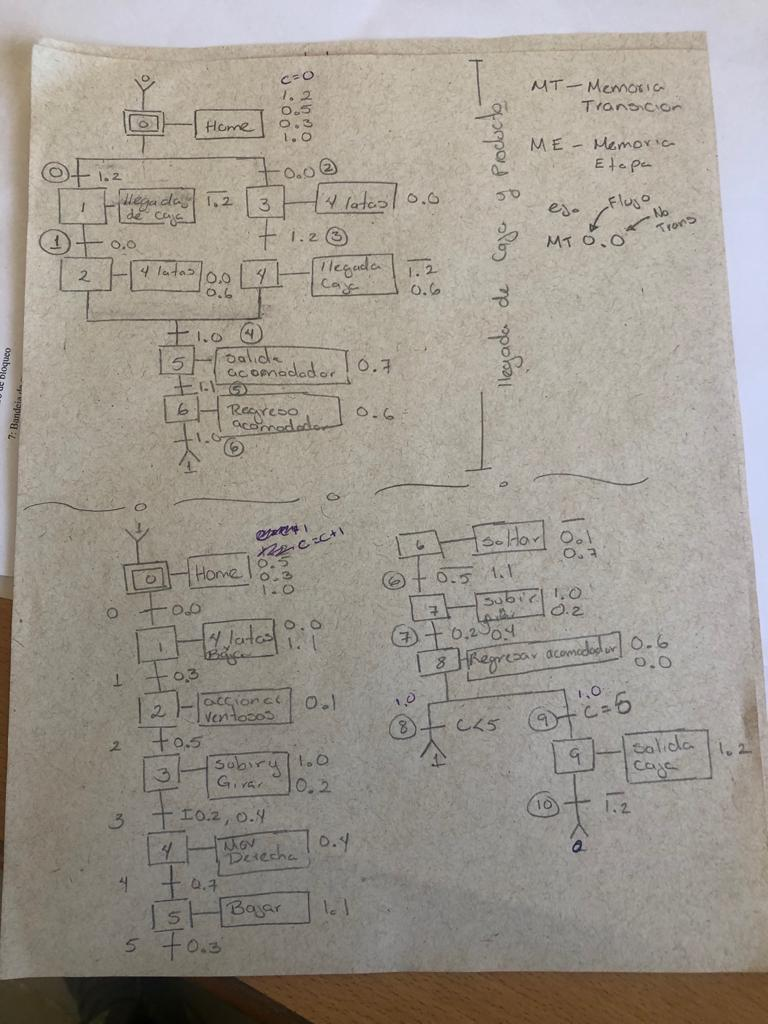 0
C=0
1.2
0.5
0.3
1.0
0 Home
0 1.2
0.0 2
1 llegada de caja 1.2
3 4 latas 0.0
1 0.0
1.2 3
2 4 latas 0.0
0.6
4 llegada caja 1.2
0.6
1.0 4
5 salida acomodador 0.7
1.1 5
6 Regreso acomodador 0.6
1.0 6
1
llegada de Caja y Producto
MT - Memoria
Transicion
ME - Memoria
Etapa
ejo Flujo
No Trans
MT 0.0
1
C=C+1
0 Home 0.5
0.3
1.0
0 0.0
1 4 latas
Baja
0.0
1.1
1 0.3
2 accionar
ventosas
0.1
2 0.5
3 Subir y
Girar
1.0
0.2
3 I0.2, 0.4
4 Mov
Derecha
0.4
4 0.7
5 Bajar 1.1
5 0.3
6 soltar 0.1
0.7
6 0.5 1.1
7 subir
1.0
0.2
7 0.2 0.4
8 Regresar acomodador 0.6
0.0
1.0
8 C<5
1
1.0
9 C=5
9 salida
caja
1.2
10 1.2
0
de bloqueo
7: Bandeja de